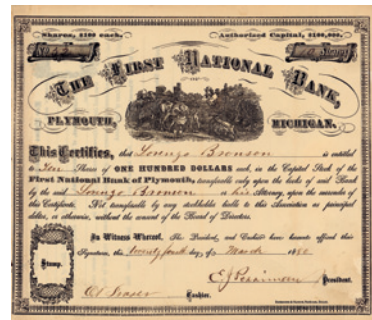 Shares, $100 each. Authorized Capital, $100,000.
No. Shares
The First National Bank,
OF
PLYMOUTH, MICHIGAN.
This Certifies, that Lorenzo Bronson is entitled
to Ten Shares of ONE HUNDRED DOLLARS each, in the Capital Stock of the
First National Bank of Plymouth, transferable only upon the books of said Bank
by the said Lorenzo Bronson or his Attorney, upon the surrender of
this Certificate. Not transferable by any stockholder liable to this Association as principal
debtor, or otherwise, without the consent of the Board of Directors.
In Witness Whereof, The President and Cashier have hereunto affixed their
Signatures, this twenty fourth day of March 18
Stamp.
President.
Cashier.